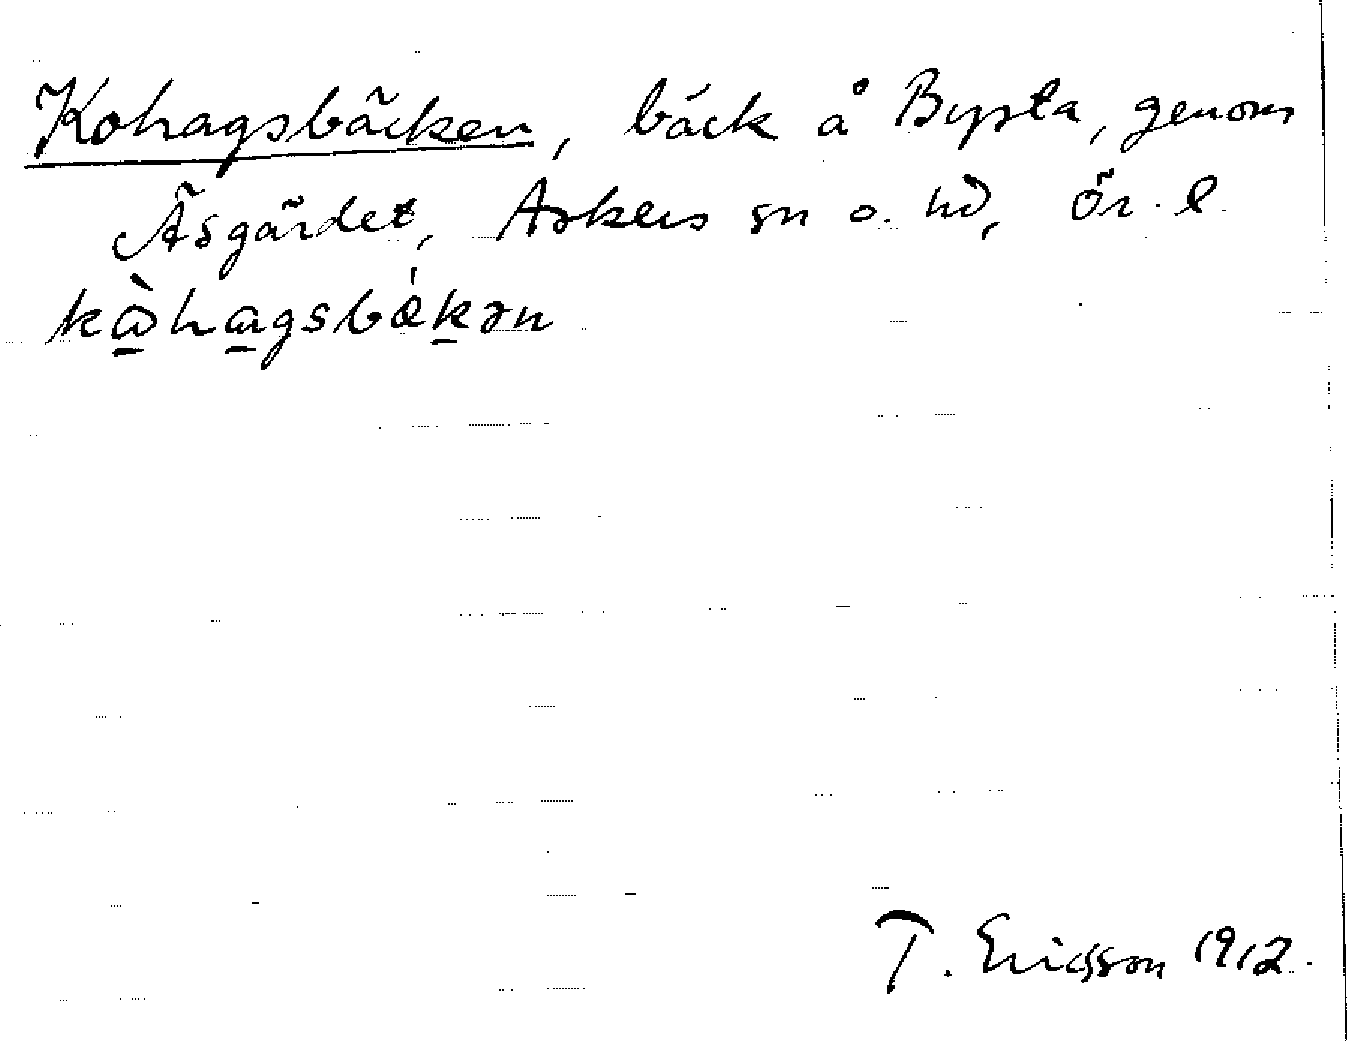 Kohagsbäcken, bäck å Bysta, genom
Åsgärdet, Askers sn o. hd, Ör. l
kὼhagsbǽkən
T. Ericsson 1912.